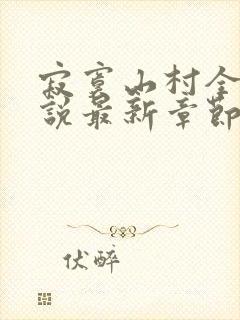 寂寞山村全
說最新章節
伏醉